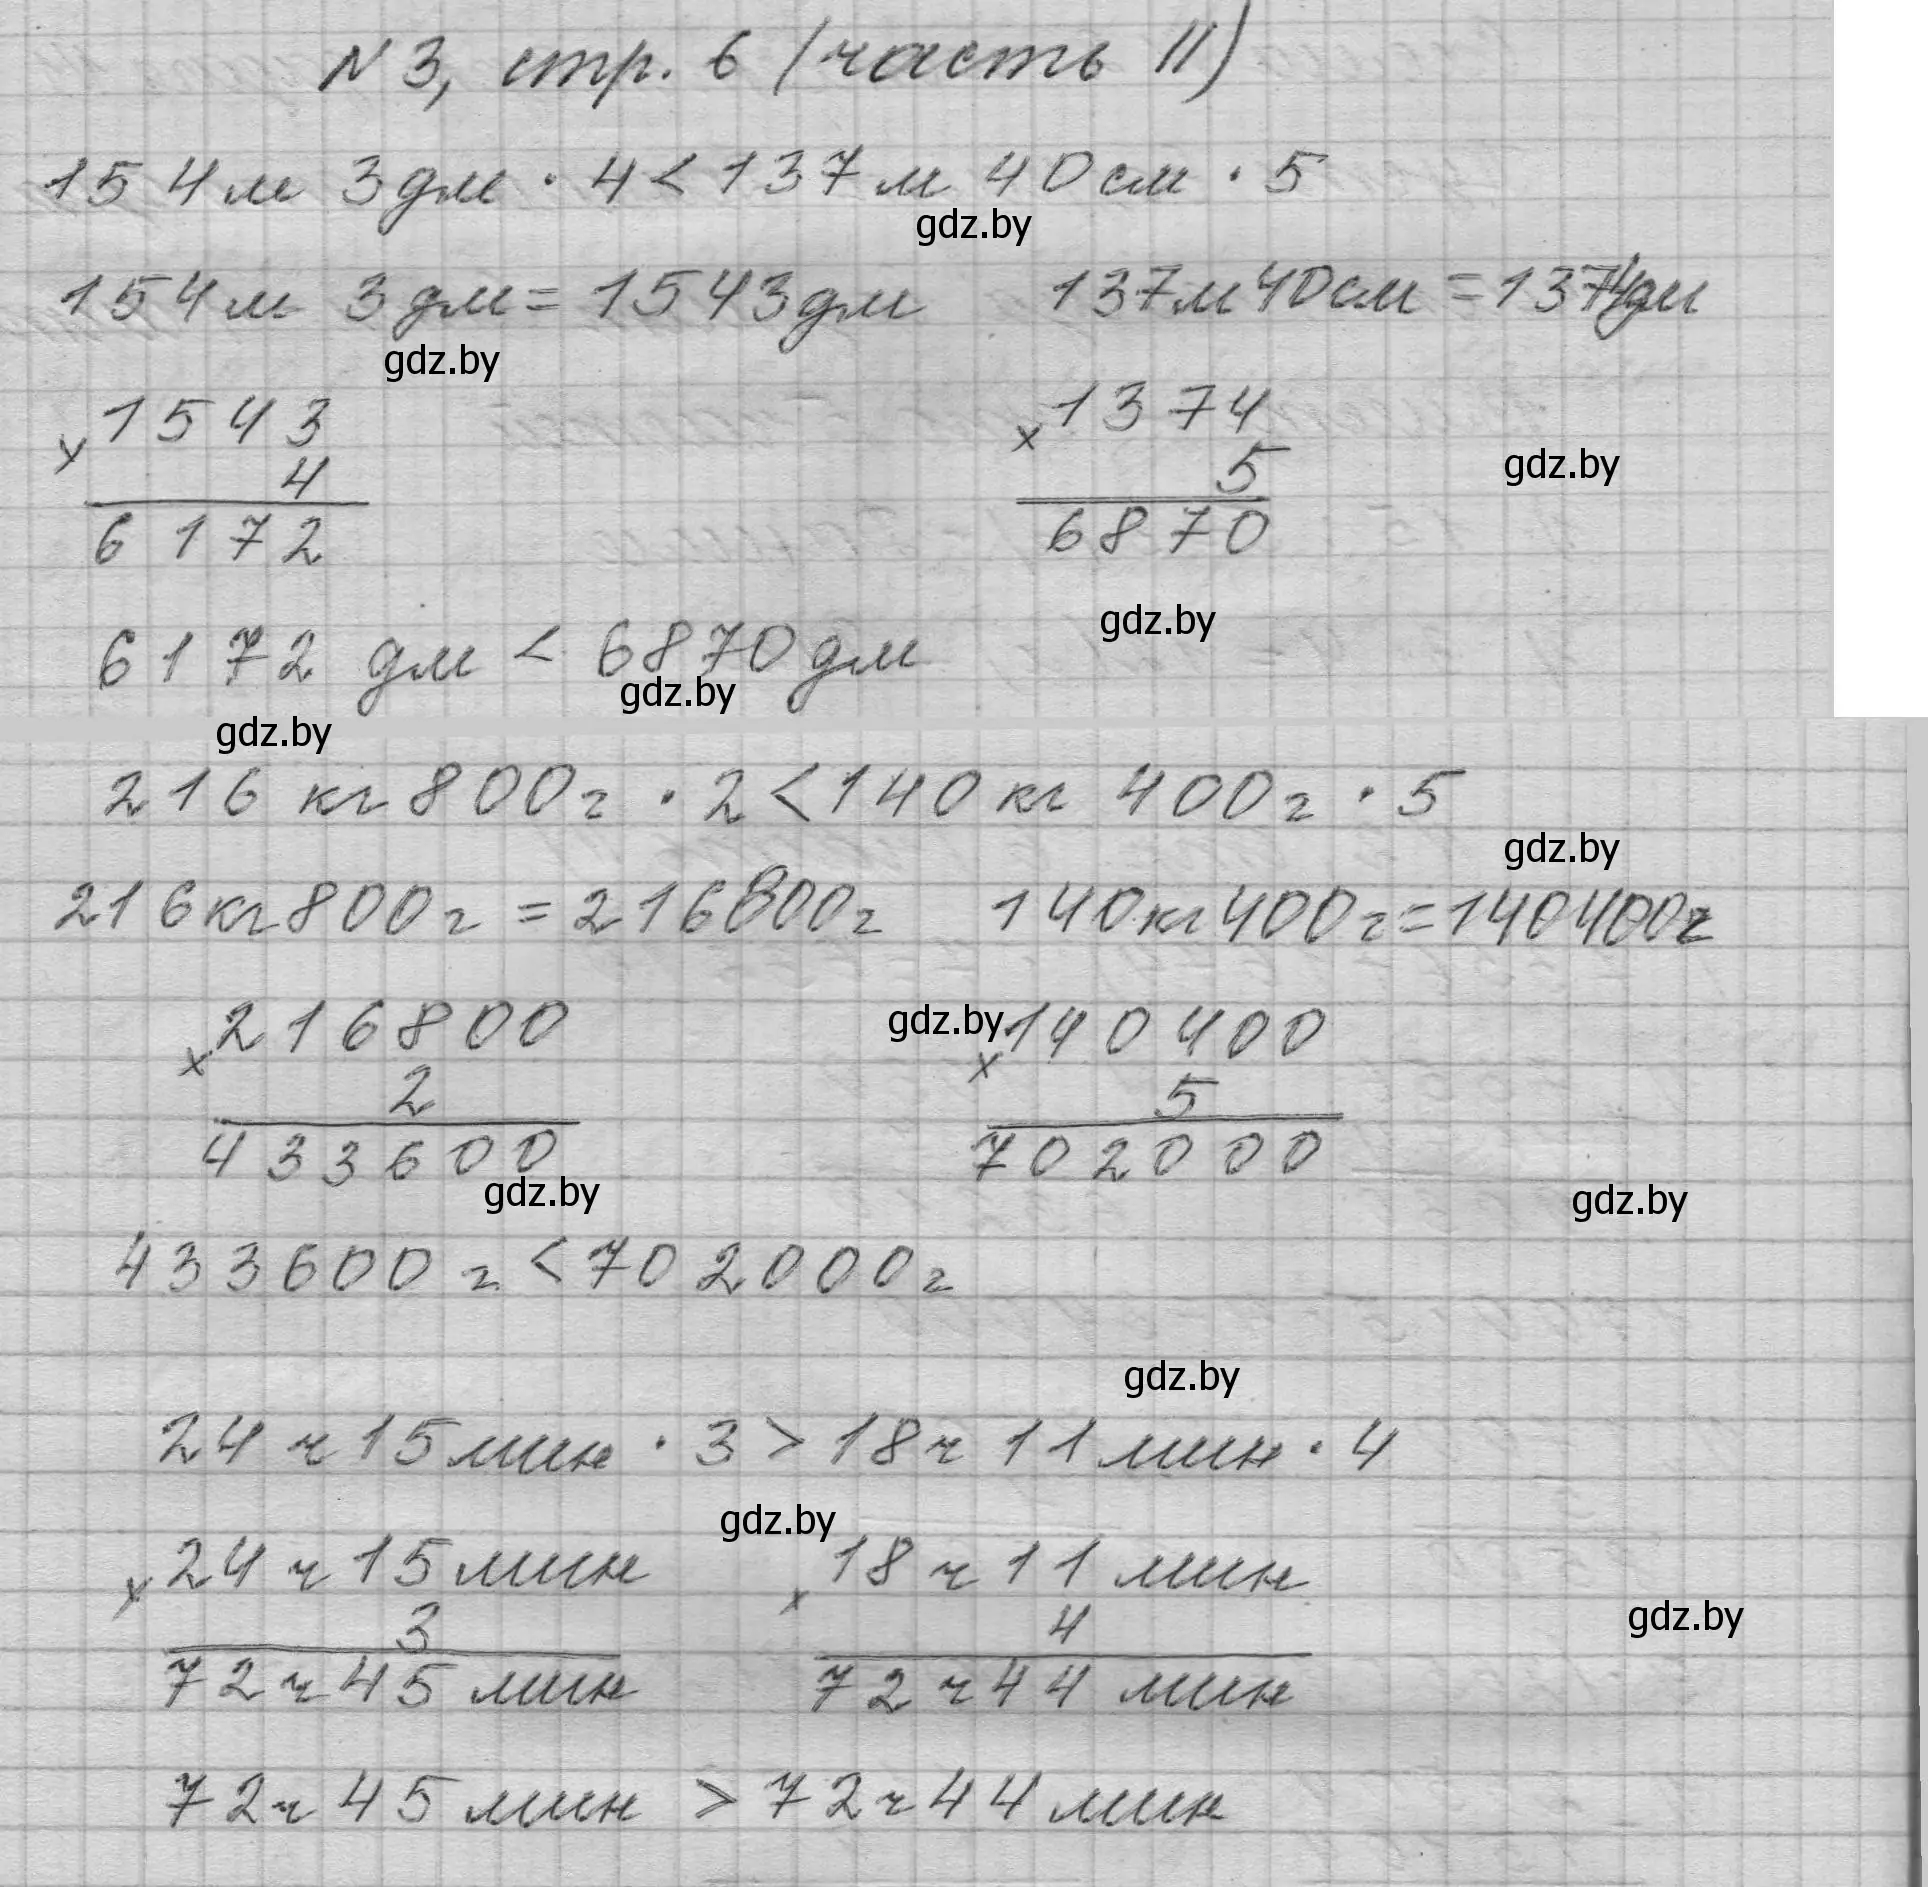 N 3, стр. 6 (часть II)
154 м 3 дм · 4 < 137 м 40 см · 5
gdz.by
154 м 3 дм = 1543 дм 137 м 40 см = 1374 дм
gdz.by
x 1543 x 1374
4 5
gdz.by
6172 6870
gdz.by
6172 дм < 6870 дм
gdz.by
gdz.by
216 кг 800 г · 2 < 140 кг 400 г · 5
gdz.by
216 кг 800 г = 216800 г 140 кг 400 г = 140400 г
x 216800 gdz.by x 140400
2 5
433600 702000
gdz.by gdz.by
433600 г < 702000 г
gdz.by
24 ч 15 мин · 3 > 18 ч 11 мин · 4
gdz.by
x 24 ч 15 мин x 18 ч 11 мин
3 4
gdz.by
72 ч 45 мин 72 ч 44 мин
72 ч 45 мин > 72 ч 44 мин